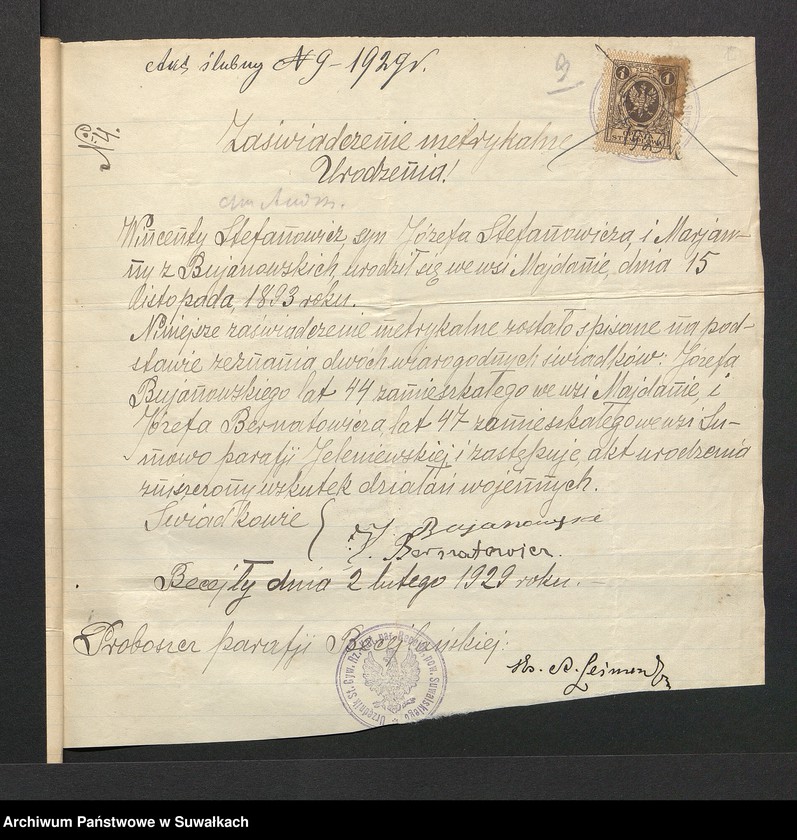 Akt ślubny № 9 - 1929 r.
9
№ 4.
1 1
Zaświadczenie metrykalne
Urodzenia!
Wincenty Stefanowicz, syn Józefa Stefanowicza, i Marjan-
ny z Bujanowskich, urodził się we wsi Majdanie, dnia 15
listopada, 1893 roku.
Niniejsze zaświadczenie metrykalne zostało spisane na pod-
stawie zeznania dwóch wiarogodnych świadków: Józefa
Bujanowskiego lat 44 zamieszkałego we wsi Majdanie, i
Józefa Bernatowicza, lat 47 zamieszkałego we wsi Su-
mowo parafji Jeleniewskiej i zastępuje, akt urodzenia
zniszczony wskutek działań wojennych.
Świadkowie { J. Bujanowski
J. Bernatowicz.
Becejły dnia 2 lutego 1929 roku. -
Proboszcz parafji Becejlańskiej:
Ks. A.
Urzędnik St. Cyw. Rz. Kat. par. pow. Suwalskiego
Archiwum Państwowe w Suwałkach